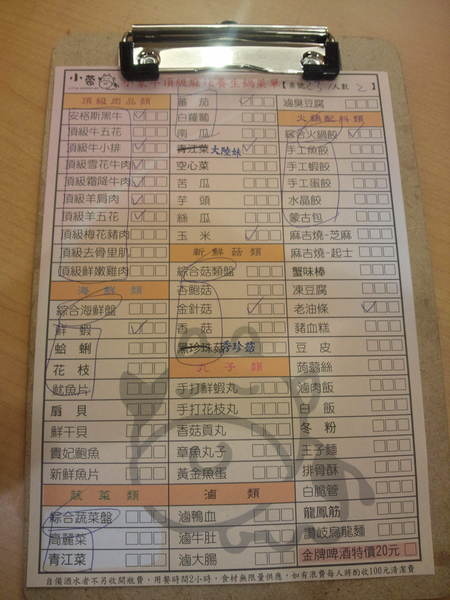 小蒙牛頂級麻辣養生鍋菜單【桌號 人數 2】
頂級肉品類
安格斯黑牛
頂級牛五花
頂級牛小排
頂級雪花牛肉
頂級霜降牛肉
頂級羊肩肉
頂級羊五花
頂級梅花豬肉
頂級去骨里肌
頂級鮮嫩雞肉
海鮮類
綜合海鮮盤
鮮蝦
蛤蜊
花枝
魷魚片
扇貝
鮮干貝
貴妃鮑魚
新鮮魚片
蔬菜類
綜合蔬菜盤
高麗菜
青江菜
蕃茄
白蘿蔔
南瓜
青江菜 大陸妹
空心菜
苦瓜
芋頭
絲瓜
玉米
新鮮菇類
綜合菇類盤
杏鮑菇
金針菇
香菇
黑珍珠菇 秀珍菇
丸子類
手打鮮蝦丸
手打花枝丸
香菇貢丸
章魚丸子
黃金魚蛋
滷類
滷鴨血
滷牛肚
滷大腸
滷臭豆腐
火鍋配料類
綜合火鍋餃
手工魚餃
手工蝦餃
手工蛋餃
水晶餃
蒙古包
麻吉燒-芝麻
麻吉燒-起士
蟹味棒
凍豆腐
老油條
豬血糕
豆皮
蒟蒻絲
滷肉飯
白飯
冬粉
王子麵
排骨酥
白脆管
龍鳳筋
讚岐烏龍麵
金牌啤酒特價20元
自備酒水者不另收開瓶費,用餐時間2小時,食材無限量供應,如有浪費每人將酌收100元清潔費